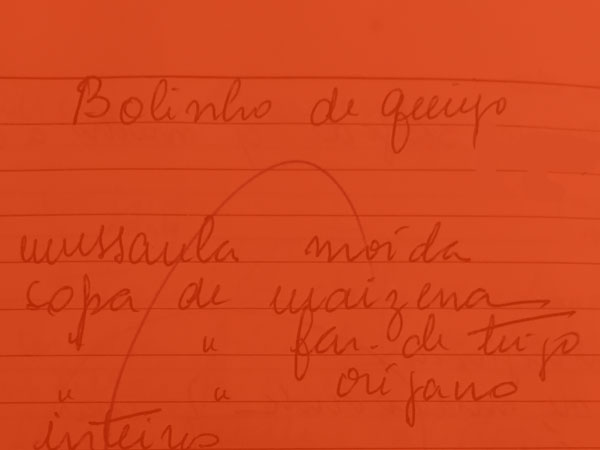 Bolinho de queijo
mussarela moída
sopa de maizena
" " far. de trigo
" " orígano
inteiros